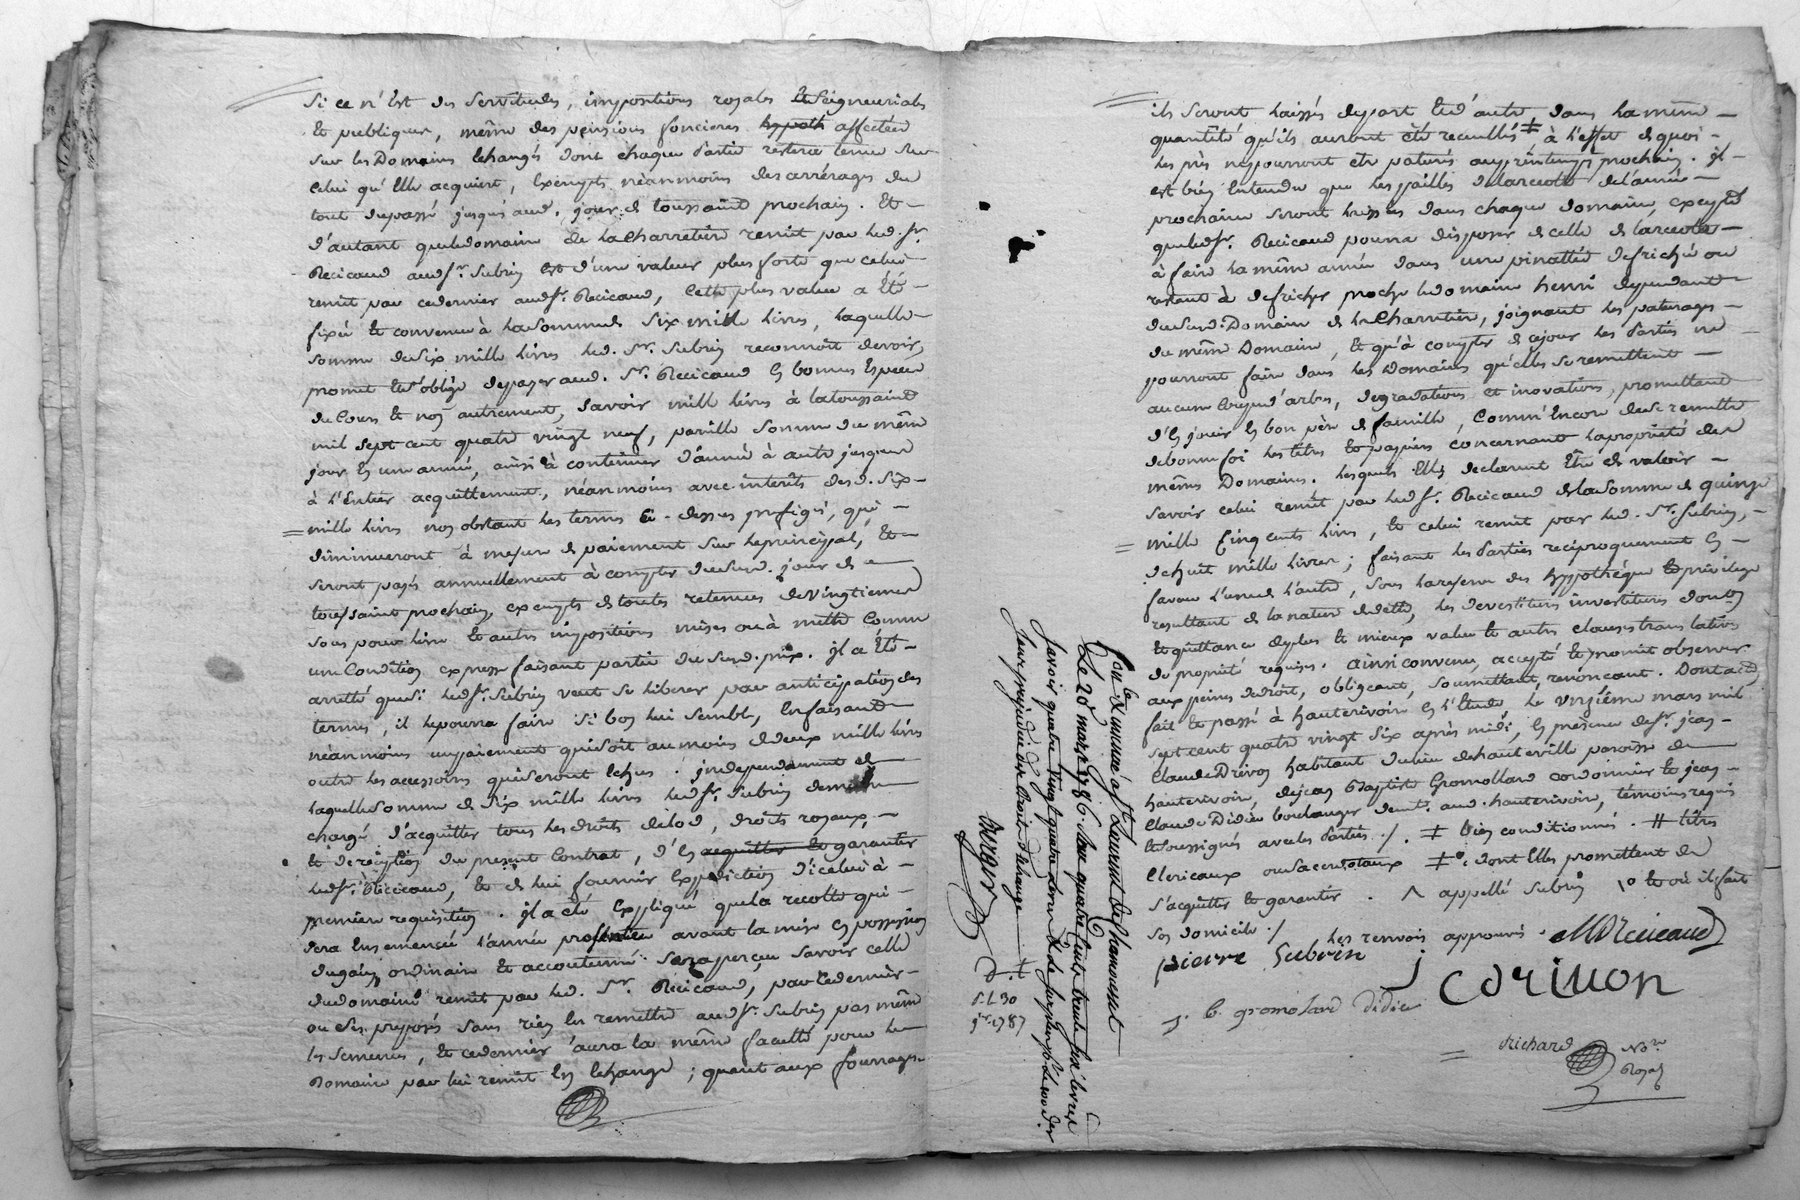 si ce n'est des servitudes, impositions royales et seigneuriales
et publiques, même des pensions foncieres hypoth affectées
sur les Domaines Echangés dont chaque Partie restera tenue sur
celui qu'Elle acquiert, Exempts néanmoins des arrérages du
tout du passé jusqu'aud. jour de toussaint prochain. Et
d'autant que le domaine de la Charretiere remit par led. sr.
Recicaud audsr. Subrin est d'une valeur plus forte que celui
remit par ce dernier audsr. Recicaud, Cette plus value a Eté
fixée et convenue à la somme de six mille livres, laquelle
somme de six mille livres led. Sr. Subrin reconnoit devoir,
promet et s'oblige de payer aud. Sr. Recicaud En bonnes Especes
de Cours et non autrement, savoir mille livres à la toussaint
mil sept cent quatre vingt neuf, pareille somme du même
jour En une année, ainsi à continuer d'année à autre jusques
à l'Entier acquittement, néanmoins avec interêts desd. six
mille livres non obstant les termes ci-dessus prefigés, qui
diminueront à mesure de paiement sur le principal, et
seront payés annuellement à compter dususd. jour de
toussaint prochain, exempts de toutes retenues de vingtiemes
sous pour livre et autres impositions mises ou à mettre Comme
une Condition expresse faisant partie dususd. prix. il a Eté
arretté que si ledsr. Subrin veut se liberer par anticipation des
termes, il le pourra faire si bon lui semble, En faisant
néanmoins un paiement qui soit au moins de deux mille livres
outre les accessoires qui seront Echus. independamment de
laquelle somme de six mille livres ledsr. Subrin demeure
chargé d'acquitter tous les droits de lod, droits royaux,
et de reception du present Contrat, d'En acquitter et garantir
ledsr. Recicaud, et de lui fournir Expedition d'icelui à
premiere requisition. il a été Expliqué que la recolte qui
sera Ensemencée l'année presente avant la mise En possession
du gain ordinaire et accoutumé sera perçue savoir celle
du domaine remit par led. Sr. Recicaud, par ce dernier
ou ses preposés sans rien En remettre audsr. Subrin pas même
les semences, et ce dernier aura la même faculté pour le
Domaine par lui remit En Echange; quant aux fourrages
Controlé et insinué à St. Laurent de Chamousset
Le 20 mars 1786. Reçu quatre cents trente six livres
savoir quatre vingt quatre
sans préjudice du droit d'échange
ils seront laissés de part et d'autre dans la même
quantité qu'ils auront été recueillis ‡ à l'effet de quoi
les prés ne pourront être paturés au printemps prochain. il
est bien Entendu que les pailles de la recolte de l'année
prochaine seront laissées dans chaque domaine, excepté
que ledsr. Recicaud pourra disposer de celle de la recolte
à faire la même année dans une pinattée defrichée ou
restant à defricher proche le domaine henri dependant
dususd. Domaine de la Charretiere, joignant les paturages
du même Domaine, et qu'à compter de ce jour les Parties ne
pourront faire dans les Domaines qu'elles se remettent
aucune Coupe d'arbres, degradations et inovations, promettant
d'En jouir En bon père de famille, Comm'Encore de se remettre
de bonne foi les titres et papiers concernant la proprieté des
mêmes Domaines. lesquels Elles declarent Etre de valeur
savoir celui remit par ledsr. Recicaud de la somme de quinze
mille Cinq cents livres, et celui remit par led. Sr. Subrin,
de huit mille livres; faisant les Parties reciproquement En
faveur l'une de l'autre, sous la reserve des hypothéque et privilege
resultant de la nature de dette, les devestitures investitures
et quittance de plus et mieux value et autres clauses translatives
de proprieté requises. ainsi convenu, accepté et promit observer
aux peines de droit, obligeant, soumettant, renonçant. Dont acte
fait et passé à hauterivoire En l'Etude, le onzième mars mil
sept cent quatre vingt six après midi, En présence de sr. jean
Claude Drivon habitant du lieu de hauteville paroisse de
hauterivoire, de jean Baptiste Gromollard cordonnier et jean
Claude Didier boulanger demts. aud. hauterivoire, témoins requis
et soussignés avec les Parties ./. ‡ bien conditionnés. # titres
Clericaux ou sacerdotaux ‡° dont Elles promettent de
s'acquitter et garantir. ^ appellé Subrin 1° et où il fait
son domicile ./ les renvois approuvés. MRecicaud
pierre Subrin J C drivon
j. b. gromolard Didier
Richard Nore.
Royal